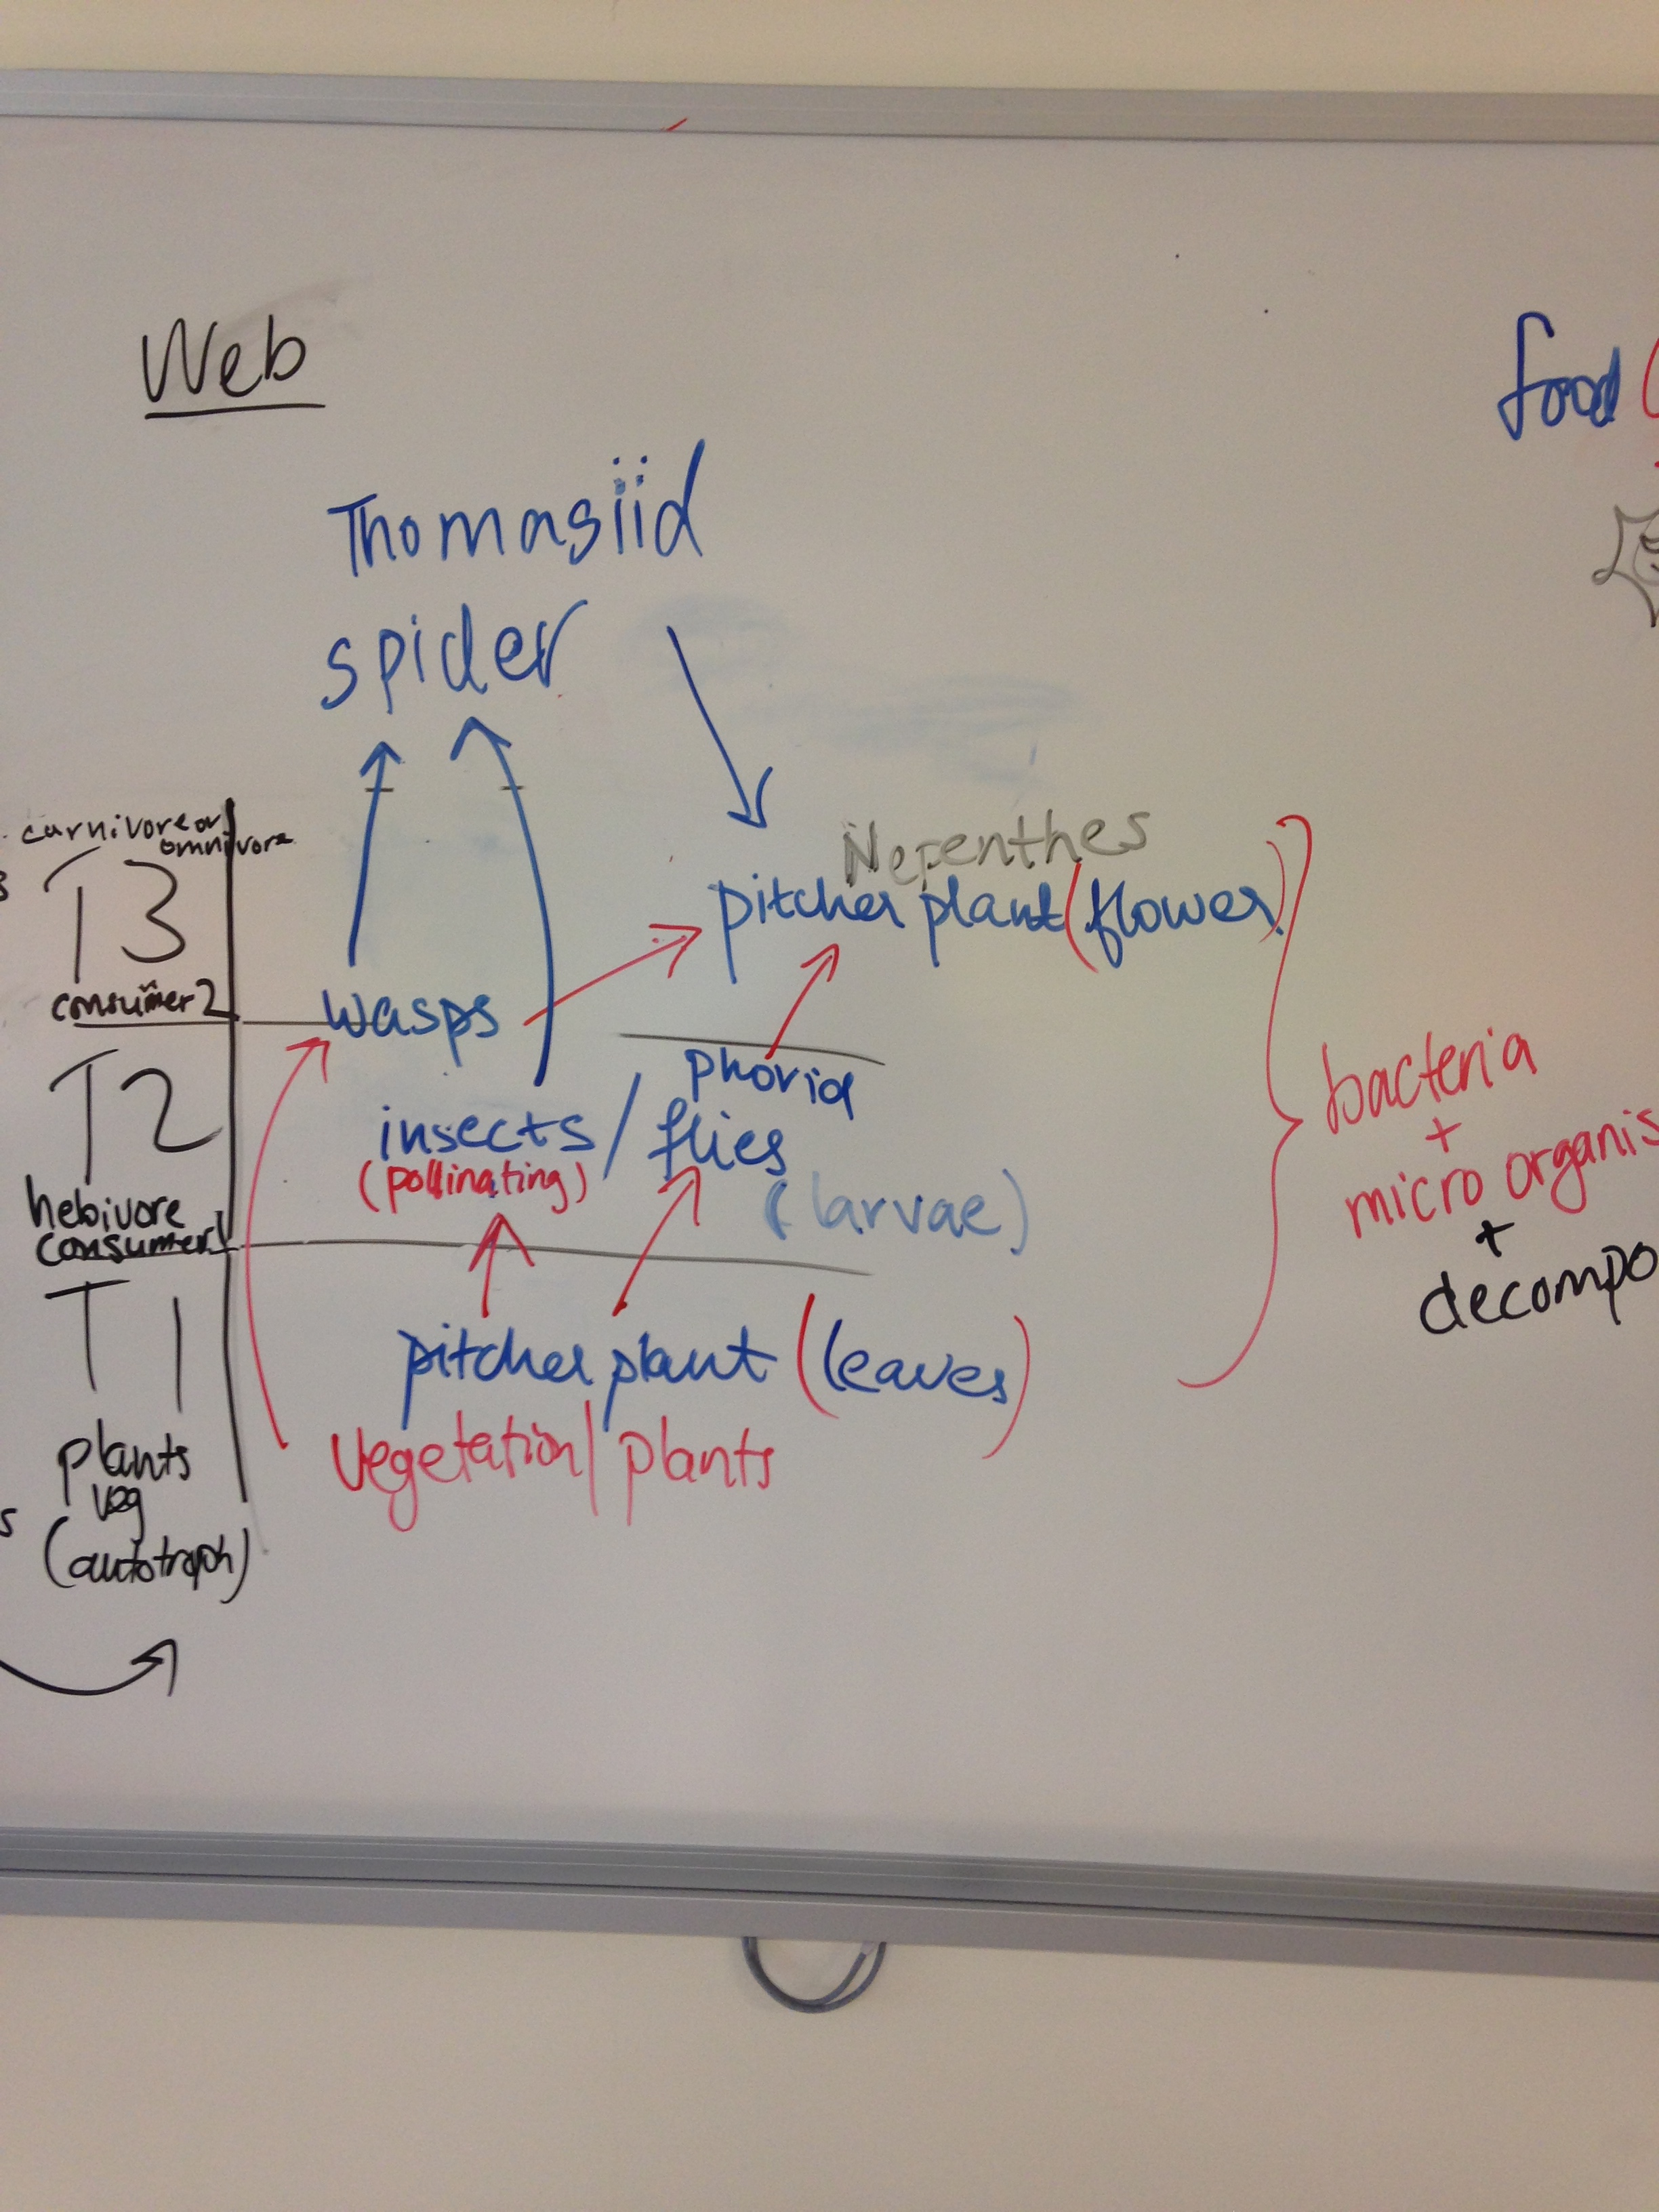 Web
food (
Thomasiid
spider
carnivore or
omnivore
T3
consumer 2
Nepenthes
pitcher plant (flower)
wasps
T2
hebivore
consumer 1
phorid
insects / flies
(pollinating)
(larvae)
bacteria
+
micro organis
+
decompo
T1
plants
veg
(autotroph)
pitcher plant (leaves)
vegetation / plants